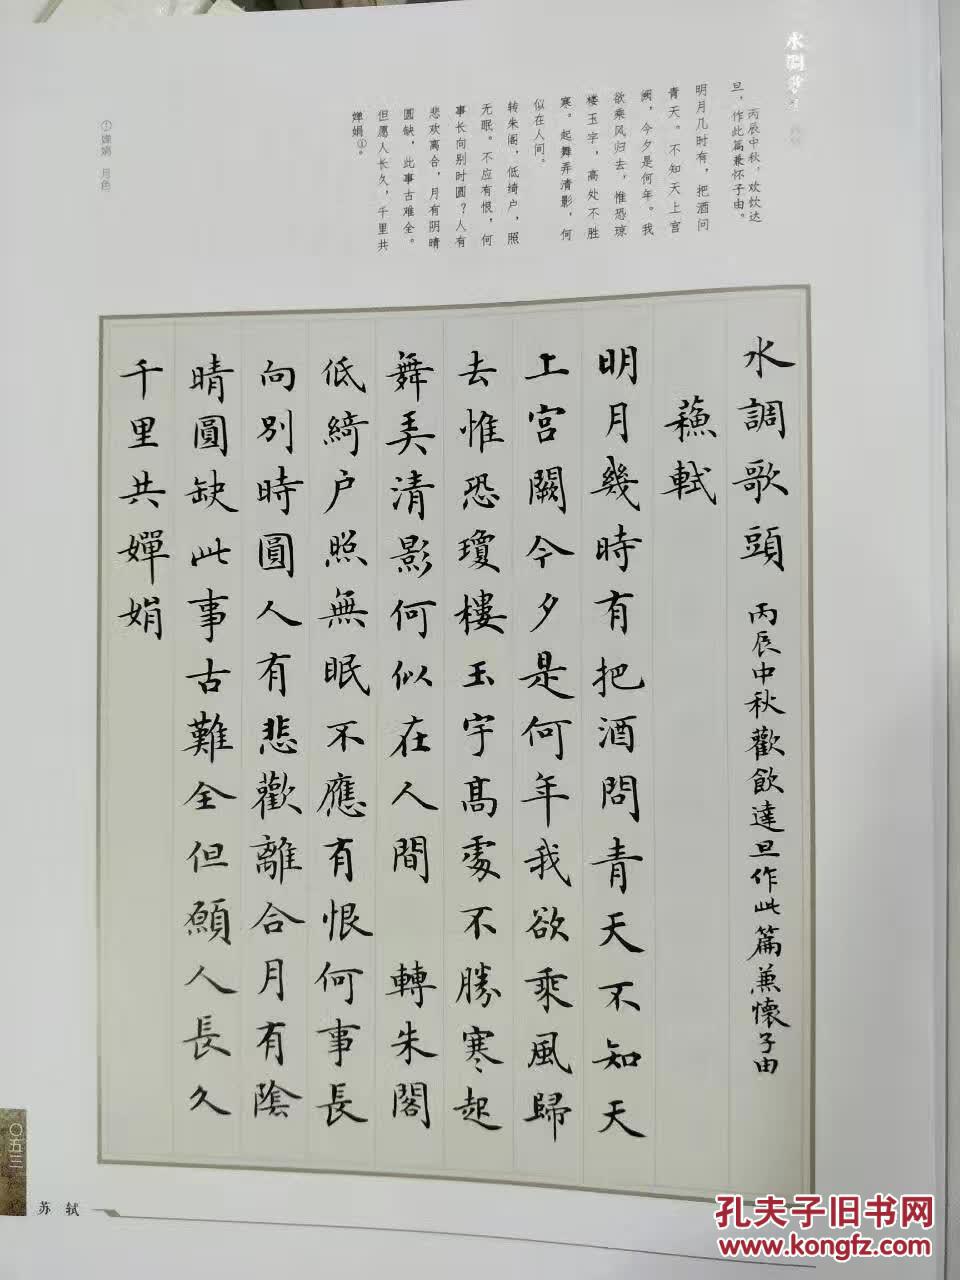 水调歌头
丙辰中秋，欢饮达
旦，作此篇兼怀子由。
明月几时有，把酒问
青天。不知天上宫
阙，今夕是何年。我
欲乘风归去，惟恐琼
楼玉宇，高处不胜
寒。起舞弄清影，何
似在人间。
转朱阁，低绮户，照
无眠。不应有恨，何
事长向别时圆？人有
悲欢离合，月有阴晴
圆缺，此事古难全。
但愿人长久，千里共
婵娟①。
①婵娟 月色
水調歌頭 丙辰中秋歡飲達旦作此篇兼懷子由
蘓軾
明月幾時有把酒問青天不知天
上宮闕今夕是何年我欲乘風歸
去惟恐瓊樓玉宇高處不勝寒起
舞弄清影何似在人間 轉朱閣
低綺户照無眠不應有恨何事長
向別時圓人有悲歡離合月有陰
晴圓缺此事古難全但願人長久
千里共嬋娟
〇五三
苏轼
孔夫子旧书网
www.kongfz.com